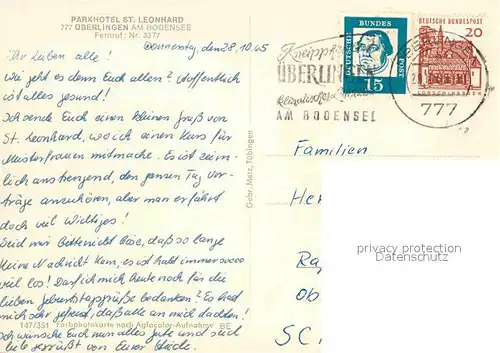 PARKHOTEL ST. LEONHARD
777 ÜBERLINGEN AM BODENSEE
Fernruf: Nr. 3377
Donnerstag, den 28.10.65
Ihr Lieben alle!
Wie geht es denn Euch allen? Hoffentlich
ist alles gesund!
Ich sende Euch einen kleinen Gruß von
St. Leonhard, wo ich einen Kurs für
Meisterfrauen mitmache. Es ist ziem-
lich anstrengend, den ganzen Tag Vor-
träge anzuhören, aber man erfährt
doch viel Wichtiges!
Seid mir bitte nicht böse, daß so lange
keine Nachricht kam, es ist halt immer sooo
viel los! Darf ich mich heute noch für die
lieben Geburtstagsgrüße bedanken? Es hat
mich sehr gefreut, daß alle an mich dachten!
Ich wünsche Euch nun alles Gute und
seid lieb gegrüßt von Eurer
147/351 Farbphotokarte nach Agfacolor-Aufnahme BE
Gebr. Metz, Tübingen
Kneipp
ÜBERLINGEN
AM BODENSEE
BUNDES
POST
DEUTSCHE
15
DEUTSCHE BUNDESPOST
20
ÜBERLINGEN
777
Familien
He
Ra
Ob
SC
privacy protection
Datenschutz